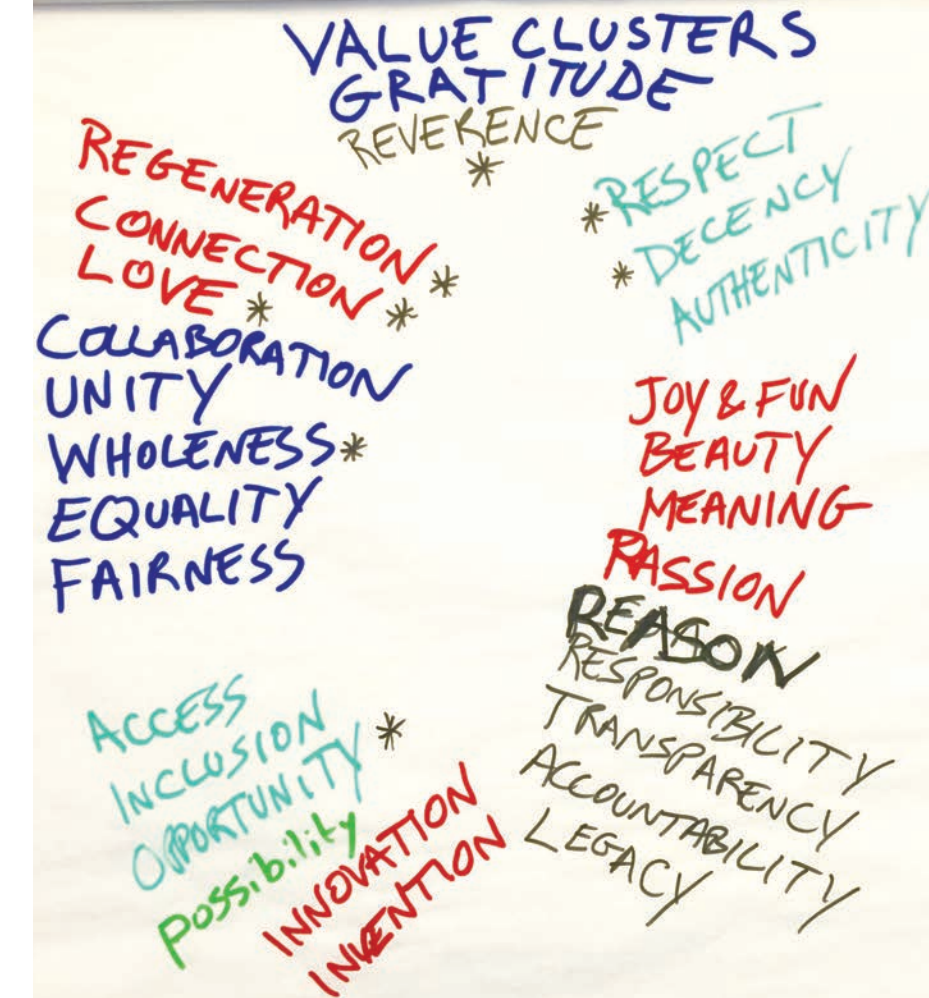 VALUE CLUSTERS
GRATITUDE
REVERENCE
*
REGENERATION *
CONNECTION *
LOVE *
COLLABORATION
UNITY
WHOLENESS *
EQUALITY
FAIRNESS
* RESPECT
* DECENCY
AUTHENTICITY
JOY & FUN
BEAUTY
MEANING
PASSION
REASON
RESPONSIBILITY
TRANSPARENCY
ACCOUNTABILITY
LEGACY
ACCESS
INCLUSION
OPPORTUNITY *
possibility
INNOVATION
INVENTION